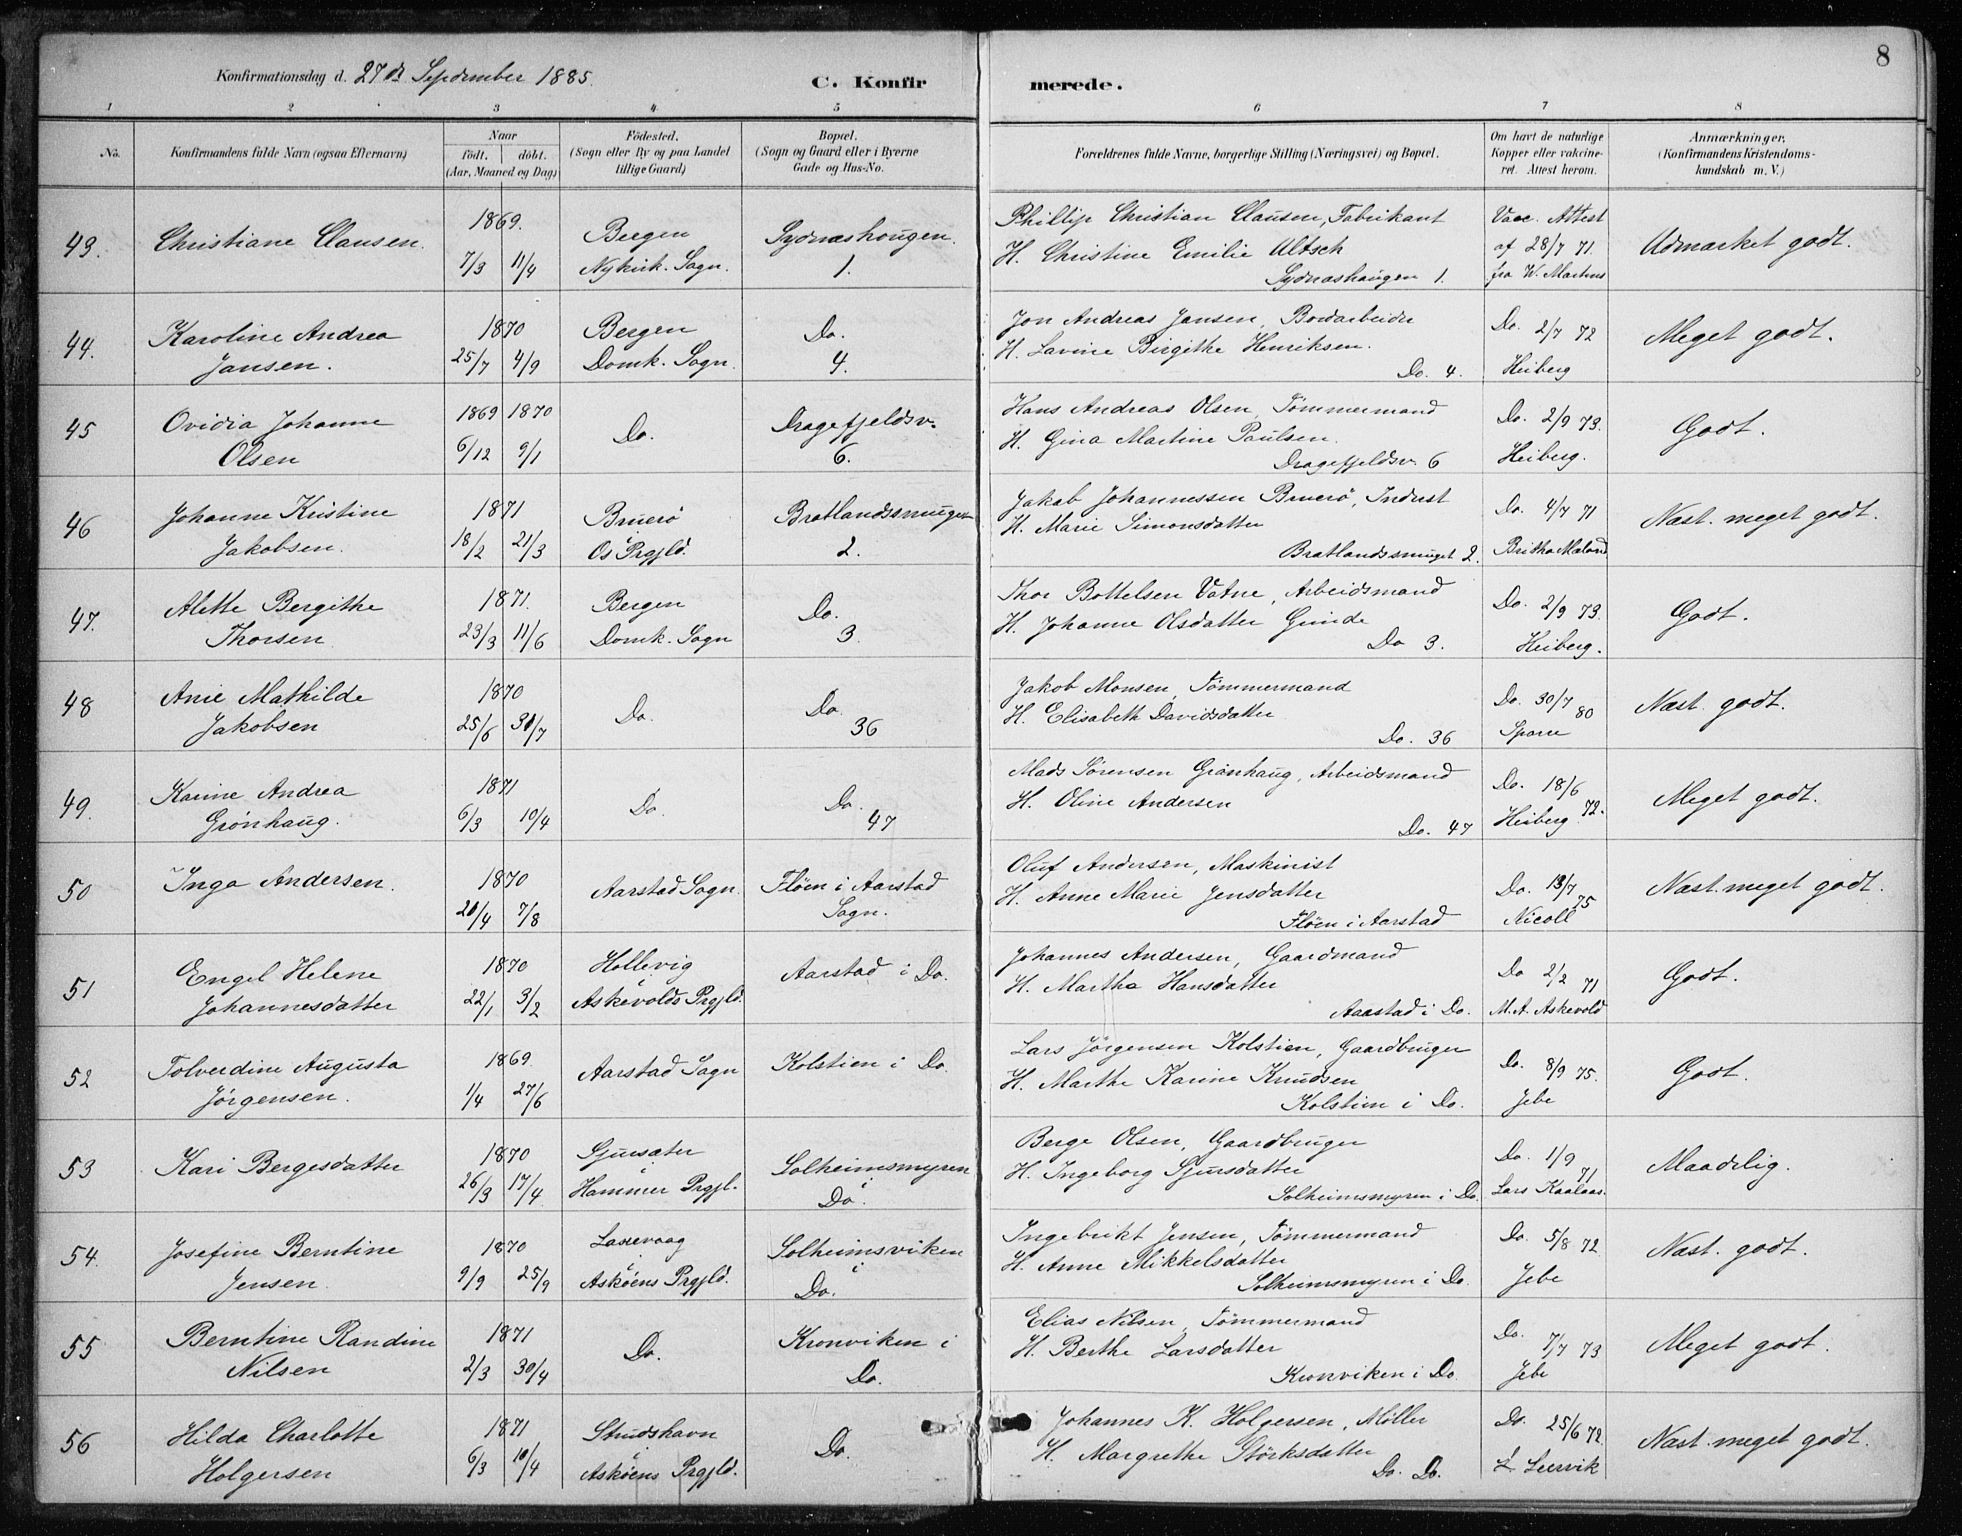 8
Konfirmationsdag d. 27de September 1885.
C. Konfir merede.
1 2 3 4 5 6 7 8
No. Konfirmandens fulde Navn (ogsaa Efternavn) Naar födt. döbt. (Aar, Maaned og Dag) Födested. (Sogn eller By og paa Landet tillige Gaard) Bopæl. (Sogn og Gaard eller i Byerne Gade og Hus-No. Forældrenes fulde Navne, borgerlige Stilling (Næringsvei) og Bopæl. Om havt de naturlige Kopper eller vakcineret. Attest herom. Anmærkninger, (Konfirmandens Kristendomskundskab m. V.)
43. Christiane Clausen. 1869. 7/3 11/4 Bergen Nykirk. Sogn. Sydnæshougen. 1. Phillip Christian Clausen, Fabrikant
H. Christine Emilie Altsch
Sydnæshaugen 1. Vacc. Attest af 28/7 71. fra W. Martens Udmærket godt.
44. Karoline Andrea Jansen. 1870 25/7 4/9 Bergen Domk. Sogn. Do. 4. Jon Andreas Jansen, Bordarbeider
H. Lavine Birgithe Henriksen.
Do. 4. Do. 2/7 72 Heiberg Meget godt.
45 Ovidia Johanne Olsen 1869 1870 6/12 9/1 Do. Dragefjeldsv. 6. Hans Andreas Olsen, Tømmermand
H. Gina Martine Paulsen.
Dragefjeldsv. 6 Do. 2/9 73. Heiberg. Godt.
46 Johanne Kristine Jakobsen. 1871 18/2 21/3 Bruerö i Os Prgjld. Bratlandssmuget 2. Jakob Johannessen Bruerö, Inderst
H. Marie Simonsdatter
Bratlandssmuget 2. Do. 4/7 71 Britha Mæland Næst. meget godt.
47. Alette Bergithe Thorsen 1871. 23/3 11/6 Bergen Domk. Sogn Do. 3. Thor Bottelsen Vatne, Arbeidsmand
H. Johanne Olsdatter Gimde
Do 3. Do. 2/9 73. Heiberg. Godt.
48 Anie Mathilde Jakobsen 1870 25/6 31/7 Do. Do. 36 Jakob Monsen, Tømmermand
H. Elisabeth Davidsdatter
Do. 36 Do. 30/7 80 Sparre Næst. godt.
49. Karine Andrea Grønhaug. 1871 6/3 10/4 Do. Do. 47 Mads Sørensen Grønhaug, Arbeidsmand
H. Oline Andersen
Do. 47 Do. 18/6 72. Heiberg Meget godt.
50 Inga Andersen. 1870 20/4 7/8 Aarstad Sogn. Fløen i Aarstad Sogn. Oluf Andersen, Maskinist
H. Anne Marie Jensdatter
Fløen i Aarstad Do. 13/7 75 Nicoll Næst. meget godt.
51 Engel Helene Johannesdatter 1870 22/1 3/2 Hollevig i Askevolds Prgjld. Aarstad i Do. Johannes Andersen, Gaardmand
H. Martha Hansdatter
Aarstad i Do. Do 2/2 71 M. A. Askevold Godt.
52 Tolverdine Augusta Jørgensen. 1869 1/4 27/6 Aarstad Sogn Kolstien i Do. Lars Jørgensen Kolstien, Gaardbruger
H. Marthe Karine Knudsen
Kolstien i Do. Do. 8/9 75. Jebe Godt.
53 Kari Bergesdatter 1870 26/3 17/4 Gjursæter i Hammer Prgjl. Solheimsmyren i Do. Berge Olsen, Gaardbruger
H. Ingeborg Sjursdatter
Solheimsmyren i Do. Do. 1/9 71 Lars Kaalaas. Maadelig.
54. Josefine Berntine Jensen. 1870 9/9 25/9 Laxevaag i Askøens Prgjld. Solheimsviken i Do. Ingebrikt Jensen, Tømmermand
H. Anne Mikkelsdatter
Solheimsmyren i Do. Do. 5/8 72. Jebe Næst. godt.
55 Berntine Randine Nilsen 1871 2/3 30/4 Do. Kronviken i Do. Elias Nilsen, Tømmermand
H. Berthe Larsdatter
Kronviken i Do. Do. 7/7 73 Jebe Meget godt.
56 Hilda Charlotte Holgersen 1871 6/3 10/4 Strudshavn i Askøens Prgjld. Do. Johannes K. Holgersen, Møller
H. Margrethe Størksdatter
Do. Do. Do. 25/6 72. L. Leervik Næst. meget godt.